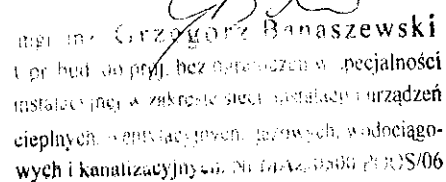 mgr inż. Grzegorz Banaszewski
upr. bud. do proj. bez ograniczeń w specjalności
instalacyjnej w zakresie sieci, instalacji i urządzeń
cieplnych, wentylacyjnych, gazowych, wodociągo-
wych i kanalizacyjnych. Nr /POOS/06